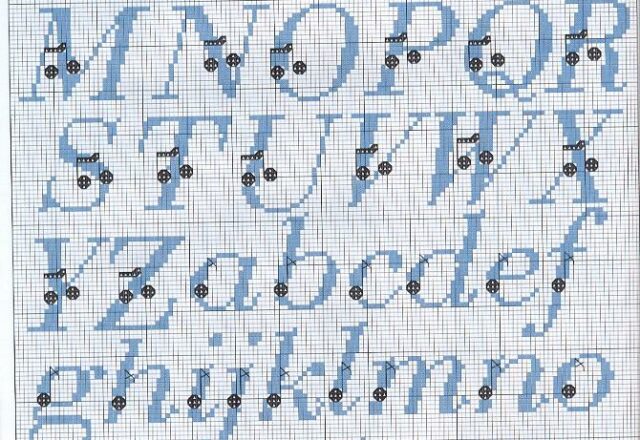 M N O P Q R
S T U V W X
Y Z a b c d e f
g h i j k l m n o